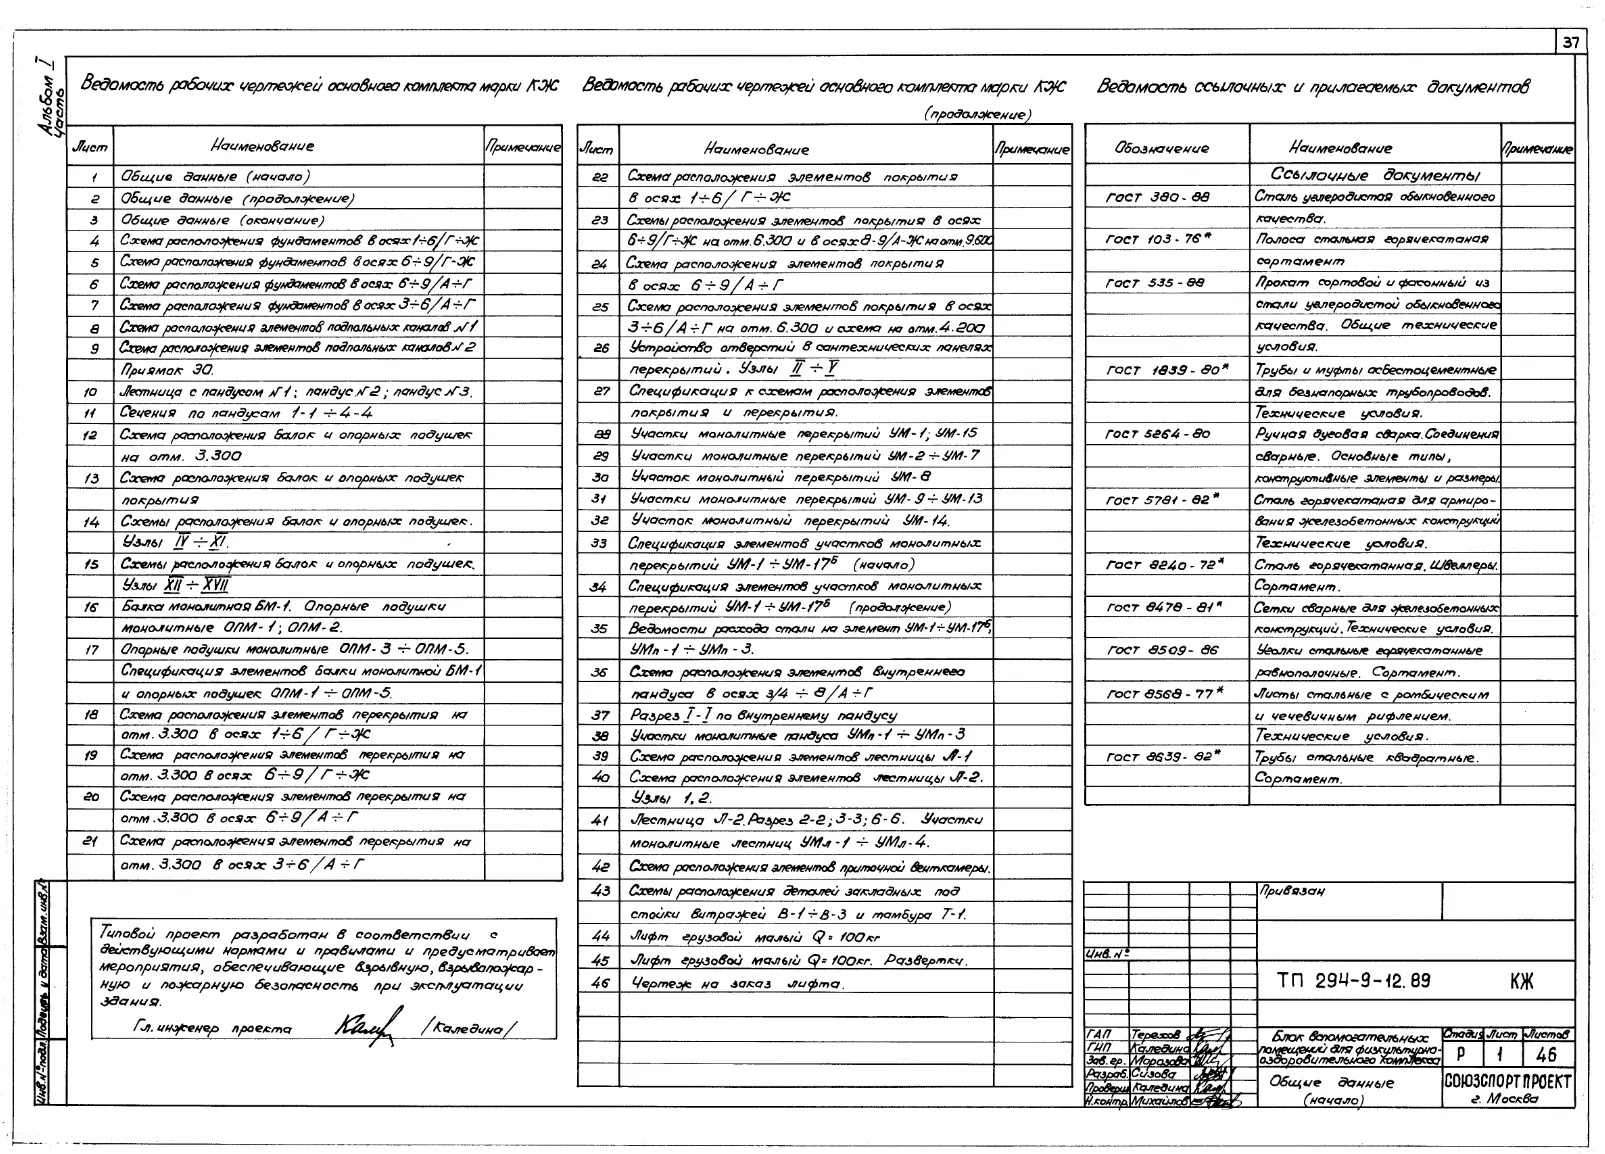 37
Альбом I
Часть
Ведомость рабочих чертежей основного комплекта марки КЖ
Лист Наименование Примечание
1 Общие данные (начало)
2 Общие данные (продолжение)
3 Общие данные (окончание)
4 Схема расположения фундаментов в осях 1÷6/Г÷Ж
5 Схема расположения фундаментов в осях 6÷9/Г-Ж
6 Схема расположения фундаментов в осях 6÷9/А÷Г
7 Схема расположения фундаментов в осях 3÷6/А÷Г
8 Схема расположения элементов подпольных каналов №1
9 Схема расположения элементов подпольных каналов №2
Приямок 30.
10 Лестница с пандусом №1; пандус №2; пандус №3.
11 Сечения по пандусам 1-1 ÷ 4-4
12 Схема расположения балок и опорных подушек
на отм. 3.300
13 Схема расположения балок и опорных подушек
покрытия
14 Схемы расположения балок и опорных подушек.
Узлы IV ÷ XI.
15 Схемы расположения балок и опорных подушек.
Узлы XII ÷ XVII
16 Балка монолитная БМ-1. Опорные подушки
монолитные ОПМ-1; ОПМ-2.
17 Опорные подушки монолитные ОПМ-3 ÷ ОПМ-5.
Спецификация элементов балки монолитной БМ-1
и опорных подушек ОПМ-1 ÷ ОПМ-5.
18 Схема расположения элементов перекрытия на
отм. 3.300 в осях 1÷6/ Г÷Ж
19 Схема расположения элементов перекрытия на
отм. 3.300 в осях 6÷9/Г÷Ж
20 Схема расположения элементов перекрытия на
отм. 3.300 в осях 6÷9/А÷Г
21 Схема расположения элементов перекрытия на
отм. 3.300 в осях 3÷6/А÷Г
Типовой проект разработан в соответствии с
действующими нормами и правилами и предусматривает
мероприятия, обеспечивающие взрывную, взрывопожар-
ную и пожарную безопасность при эксплуатации
здания.
Гл. инженер проекта /Каледина/
Инв.№подл. Подпись и дата Взам.инв.№
Ведомость рабочих чертежей основного комплекта марки КЖ
(продолжение)
Лист Наименование Примечание
22 Схема расположения элементов покрытия
в осях 1÷6/ Г÷Ж
23 Схемы расположения элементов покрытия в осях
6÷9/Г÷Ж на отм. 6.300 и в осях 8-9/А-Ж на отм. 9.600
24 Схема расположения элементов покрытия
в осях 6÷9/А÷Г
25 Схемы расположения элементов покрытия в осях
3÷6/А÷Г на отм. 6.300 и схема на отм. 4.200
26 Устройство отверстий в сантехнических панелях
перекрытий. Узлы II ÷ V
27 Спецификация к схемам расположения элементов
покрытия и перекрытия.
28 Участки монолитные перекрытий УМ-1; УМ-15
29 Участки монолитные перекрытий УМ-2 ÷ УМ-7
30 Участок монолитный перекрытий УМ-8
31 Участки монолитные перекрытий УМ-9 ÷ УМ-13
32 Участок монолитный перекрытий УМ-14.
33 Спецификация элементов участков монолитных
перекрытий УМ-1 ÷ УМ-17б (начало)
34 Спецификация элементов участков монолитных
перекрытий УМ-1 ÷ УМ-17б (продолжение)
35 Ведомости расхода стали на элемент УМ-1÷УМ-17б,
УМп-1 ÷ УМп-3.
36 Схема расположения элементов внутреннего
пандуса в осях 3/4 ÷ 8/А÷Г
37 Разрез I-I по внутреннему пандусу
38 Участки монолитные пандуса УМп-1 ÷ УМп-3
39 Схема расположения элементов лестницы Л-1
40 Схема расположения элементов лестницы Л-2.
Узлы 1, 2.
41 Лестница Л-2. Разрез 2-2; 3-3; 6-6. Участки
монолитные лестниц УМл-1 ÷ УМл-4.
42 Схема расположения элементов приточной венткамеры.
43 Схемы расположения деталей закладных под
стойки витражей В-1÷В-3 и тамбура Т-1.
44 Лифт грузовой малый Q=100кг
45 Лифт грузовой малый Q=100кг. Развертки.
46 Чертеж на заказ лифта.
Ведомость ссылочных и прилагаемых документов
Обозначение Наименование Примечание
Ссылочные документы
ГОСТ 380-88 Сталь углеродистая обыкновенного
качества.
ГОСТ 103-76* Полоса стальная горячекатаная
сортамент
ГОСТ 535-88 Прокат сортовой и фасонный из
стали углеродистой обыкновенного
качества. Общие технические
условия.
ГОСТ 1839-80* Трубы и муфты асбестоцементные
для безнапорных трубопроводов.
Технические условия.
ГОСТ 5264-80 Ручная дуговая сварка. Соединения
сварные. Основные типы,
конструктивные элементы и размеры.
ГОСТ 5781-82* Сталь горячекатаная для армиро-
вания железобетонных конструкций
Технические условия.
ГОСТ 8240-72* Сталь горячекатанная. Швеллеры.
Сортамент.
ГОСТ 8478-81* Сетки сварные для железобетонных
конструкций. Технические условия.
ГОСТ 8509-86 Уголки стальные горячекатанные
равнополочные. Сортамент.
ГОСТ 8568-77* Листы стальные с ромбическим
и чечевичным рифлением.
Технические условия.
ГОСТ 8639-82* Трубы стальные квадратные.
Сортамент.
Привязан
Инв.№
ТП 294-9-12.89 КЖ
ГАП Терехов
ГИП Каледина
Зав.гр. Морозова
Разраб. Сизова
Проверил Каледина
Н.контр. Михайлов
Блок вспомогательных
помещений для физкультурно-
оздоровительного комплекса
Стадия Лист Листов
Р 1 46
Общие данные
(начало)
СОЮЗСПОРТПРОЕКТ
г. Москва